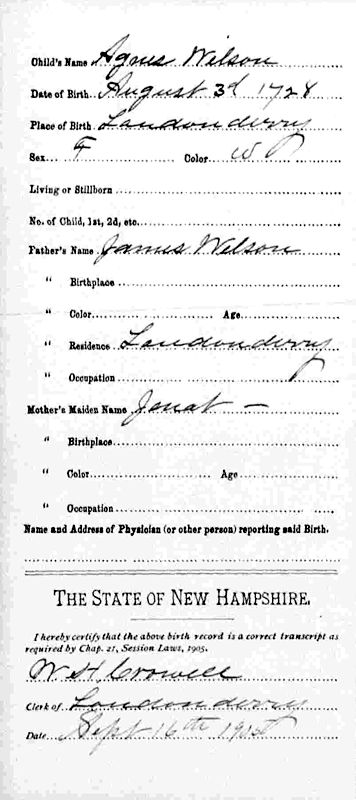 Child's Name Agnes Wilson
Date of Birth August 3d 1728
Place of Birth Londonderry
Sex F Color W
Living or Stillborn
No. of Child, 1st, 2d, etc.
Father's Name James Wilson
" Birthplace
" Color Age
" Residence Londonderry
" Occupation
Mother's Maiden Name Janat —
" Birthplace
" Color Age
" Occupation
Name and Address of Physician (or other person) reporting said Birth.
THE STATE OF NEW HAMPSHIRE.
I hereby certify that the above birth record is a correct transcript as
required by Chap. 21, Session Laws, 1905.
W. H. Crowell
Clerk of Londonderry
Date Sept 16th 1905